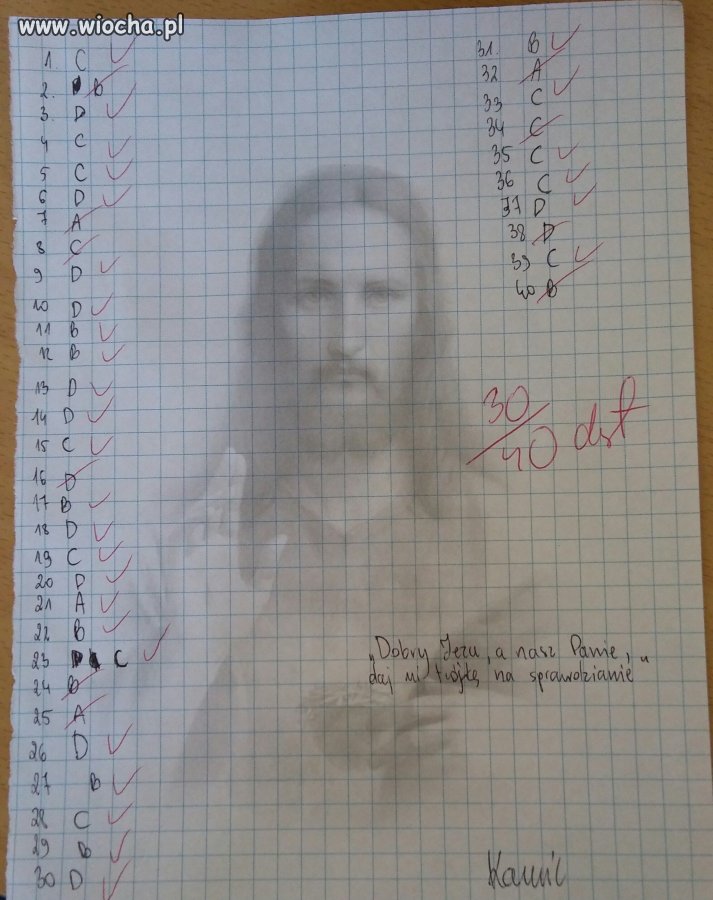 www.wiocha.pl
1. C
2. B
3. D
4 C
5 C
6 D
7 A
8 C
9 D
10 D
11 B
12 B
13 D
14 D
15 C
16 D
17 B
18 D
19 C
20 D
21 A
22 B
23 C
24 B
25 A
26 D
27 B
28 C
29 B
30 D
31. B
32 A
33 C
34 C
35 C
36 C
37 D
38 D
39 C
40 B
30/40 dst
„Dobry Jezu, a nasz Panie,
daj mi trójkę na sprawdzianie"
Kamil